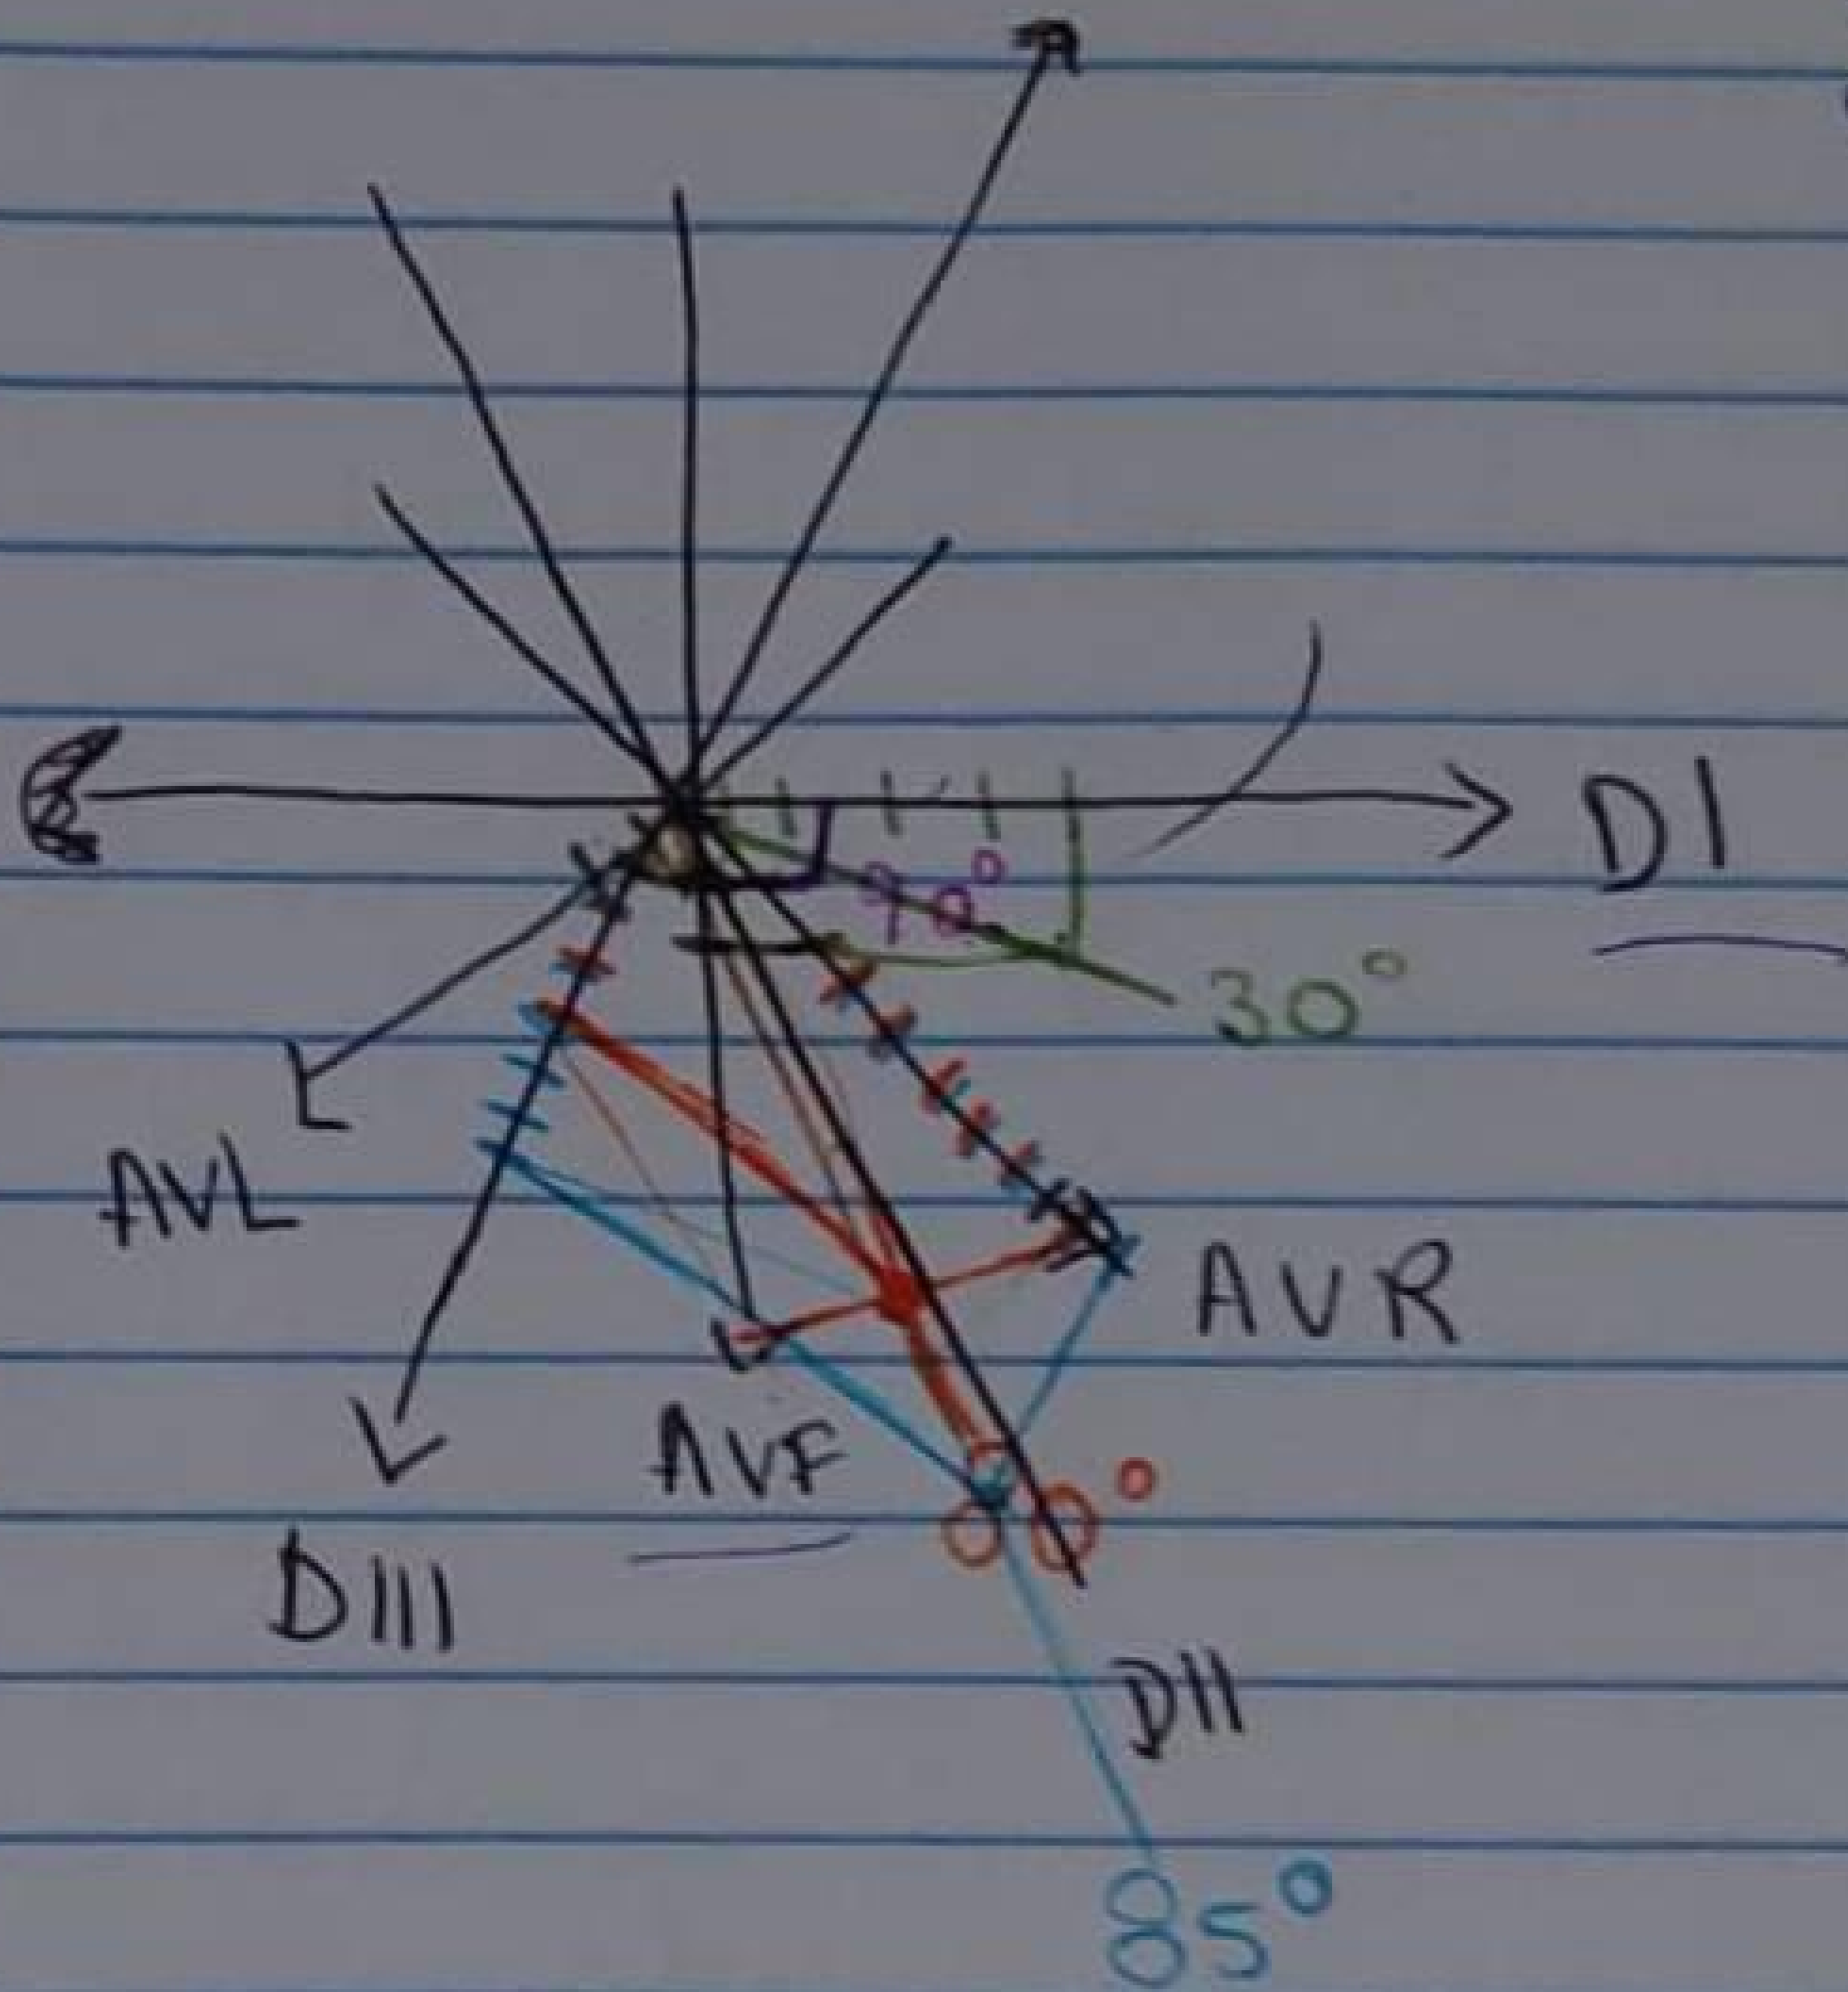 DI
90°
30°
AVL
AVR
AVF
DIII
DII
85°